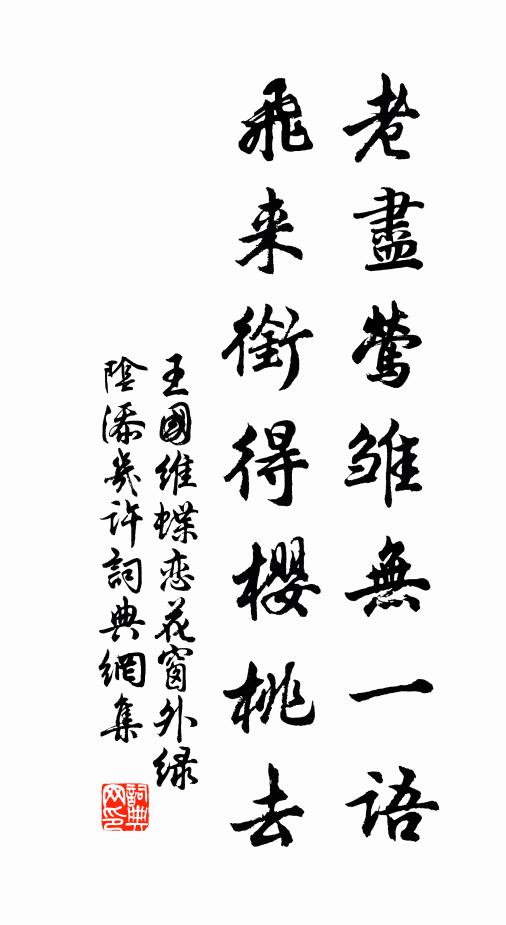 老盡鶯雏無一語
飛来銜得櫻桃去
王國維蝶恋花窗外緑
陰添幾许詞典網集
詞典网印